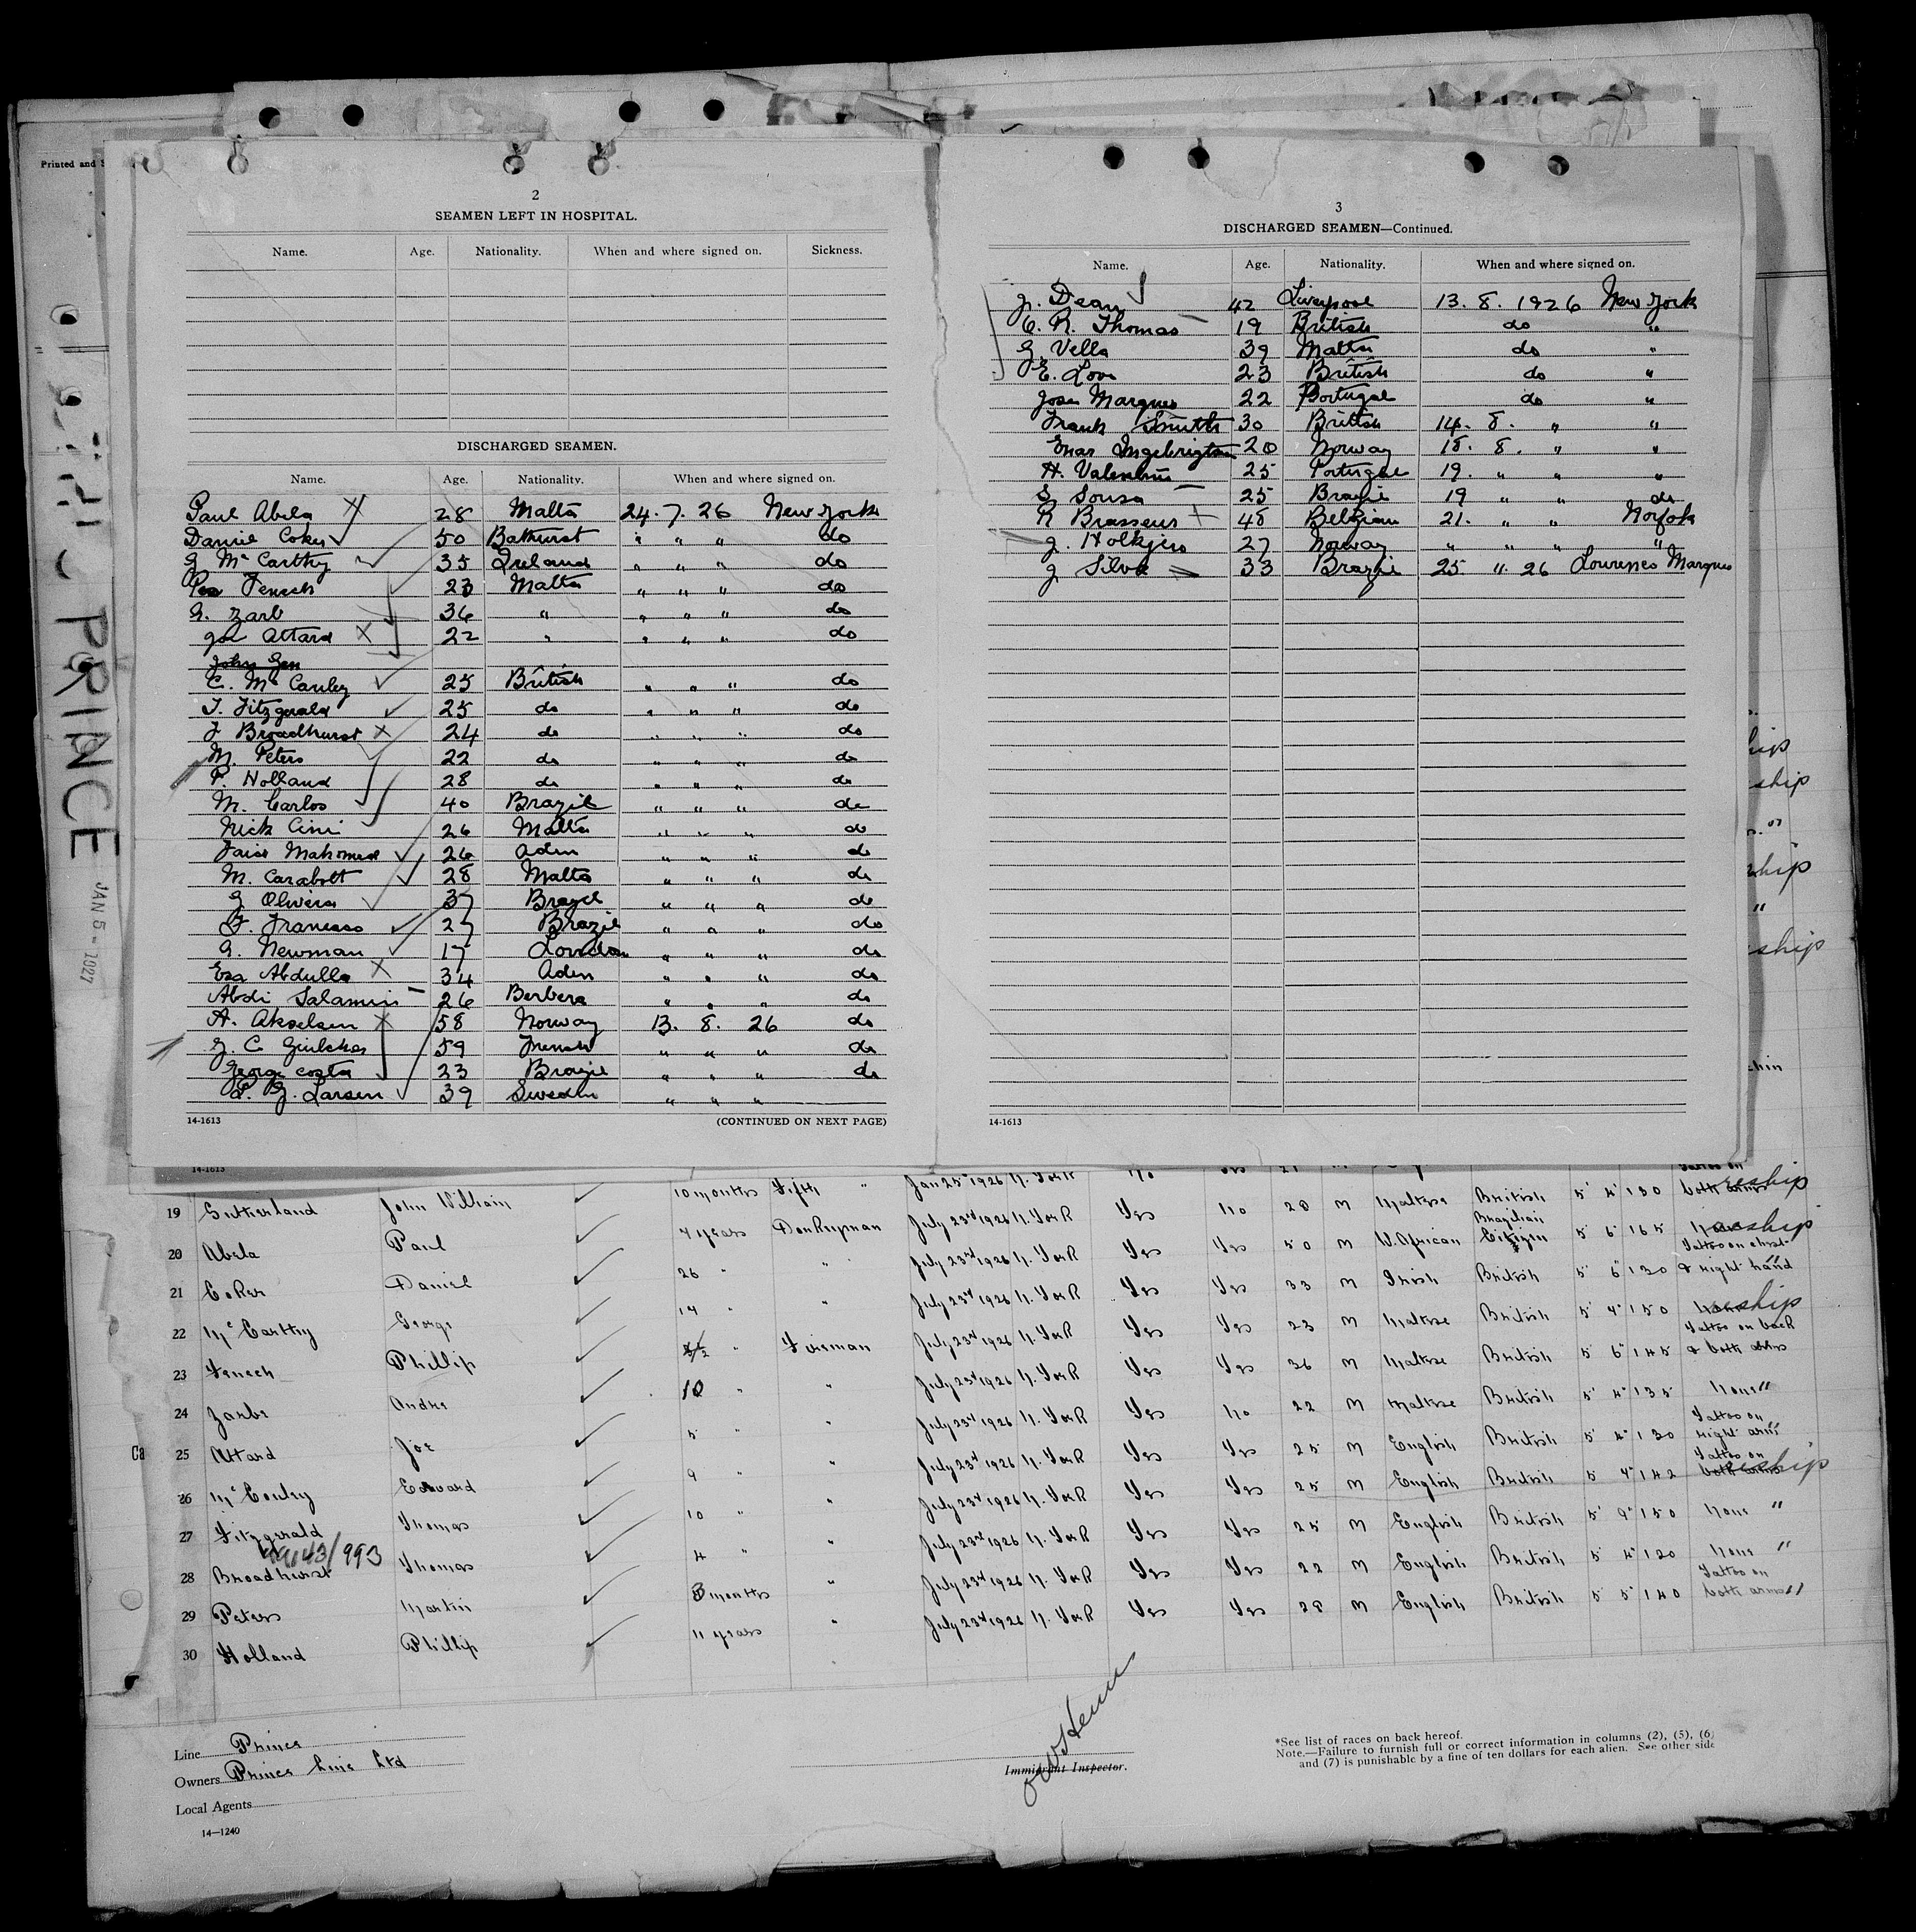 Printed and
PRINCE
JAN 5 - 1927
2
SEAMEN LEFT IN HOSPITAL.
Name. Age. Nationality. When and where signed on. Sickness.
DISCHARGED SEAMEN.
Name. Age. Nationality. When and where signed on.
Paul Abela X 28 Malta 24. 7. 26 New York
Daniel Coker 50 Bathurst " " " do
G McCarthy 35 Ireland " " " do
Fenech 23 Malta " " " do
A. Zarb 36 " " " " do
Joe Attard X 22 " " " " do
John Gen
E. McCauley 25 British " " " do
T. Fitzgerald 25 do " " " do
T Broadhurst X 24 do " " " do
M. Peters 22 do " " " do
P. Holland 28 do " " " do
M. Carlos 40 Brazil " " " do
Nick Cini 26 Malta " " " do
Mahomed 26 Aden " " " do
M. Carabott 28 Malta " " " do
Olivera 37 Brazil " " " do
F. Francisco 27 Brazil " " " do
A. Newman 17 London " " " do
Esa Abdulla X 34 Aden " " " do
Abdi 26 Berbera " " " do
A. Akselsen X 58 Norway 13. 8. 26 do
G. C. 59 French " " " do
George Costa 23 Brazil " " " do
Larsen 39 Sweden " " "
14-1613 (CONTINUED ON NEXT PAGE)
3
DISCHARGED SEAMEN—Continued.
Name. Age. Nationality. When and where signed on.
J. Dean 42 Liverpool 13. 8. 1926 New York
C. R. Thomas 19 British do "
G. Vella 39 Malta do "
E. Love 23 British do "
Jose Marques 22 Portugal do "
Frank Smith 30 British 14. 8. " "
Enar Ingebrigtsen 20 Norway 18. 8. " "
H. Valentine 25 Portugal 19. " " "
S Sousa 25 Brazil 19 " " do
R Brasseur 48 Belgian 21. " " Norfolk
J. 27 Norway " " " "
J Silva 33 Brazil 25 " 26 Lourenco Marques
14-1613
14-1613
19 Sutherland John William 10 months Fifth " Jan 25 1926 N. York
20 Abela Paul 7 years Donkeyman July 23rd 1926 N. York Yes No 28 M Maltese British 5' 4" 130
21 Coker Daniel 26 " " July 23rd 1926 N. York Yes Yes 50 M W. African Brazilian Citizen 5 6 165
22 McCarthy George 14 " " July 23rd 1926 N. York Yes Yes 33 M Irish British 5' 6" 130 Tattoo on chest & right hand
23 Fenech Phillip " Fireman July 23rd 1926 N. York Yes Yes 23 M Maltese British 5' 4" 150
24 Zarbe Andre 10 " " July 23rd 1926 N. York Yes Yes 36 M Maltese British 5 6" 145 Tattoo on back & both arms
25 Attard Joe 5 " " July 23rd 1926 N. York Yes No 22 M Maltese British 5' 4" 135 None "
26 McCauley Edward 9 " " July 23rd 1926 N. York Yes Yes 25 M English British 5' 4" 130 Tattoo on right arm
27 Fitzgerald Thomas 10 " " July 23rd 1926 N. York Yes Yes 25 M English British 5 4" 142 Tattoo on both arms
28 Broadhurst Thomas 4 " " July 23rd 1926 N. York Yes Yes 25 M English British 5' 9" 150 None "
29 Peters Martin 3 months " July 23rd 1926 N. York Yes Yes 22 M English British 5' 4" 120 None "
30 Holland Phillip 11 years " July 23rd 1926 N. York Yes Yes 28 M English British 5 5" 140 Tattoo on both arms
Line Prince
Owners Prince Line Ltd
Local Agents
14—1240
Immigrant Inspector.
*See list of races on back hereof.
Note.—Failure to furnish full or correct information in columns (2), (5), (6)
and (7) is punishable by a fine of ten dollars for each alien. See other side